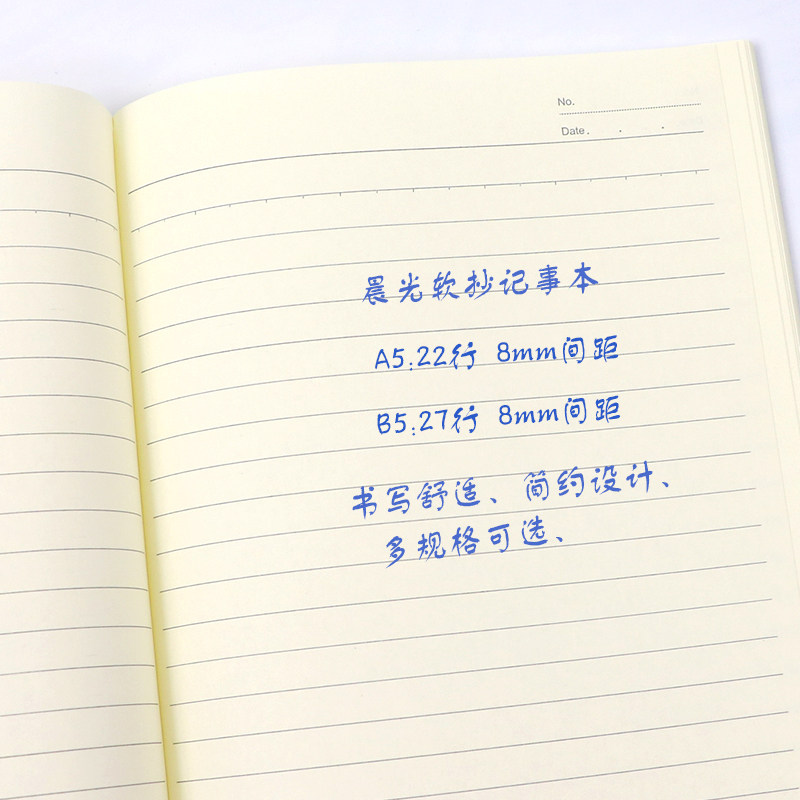 No.
Date. . .
晨光软抄记事本
A5:22行 8mm间距
B5:27行 8mm间距
书写舒适、简约设计、
多规格可选、